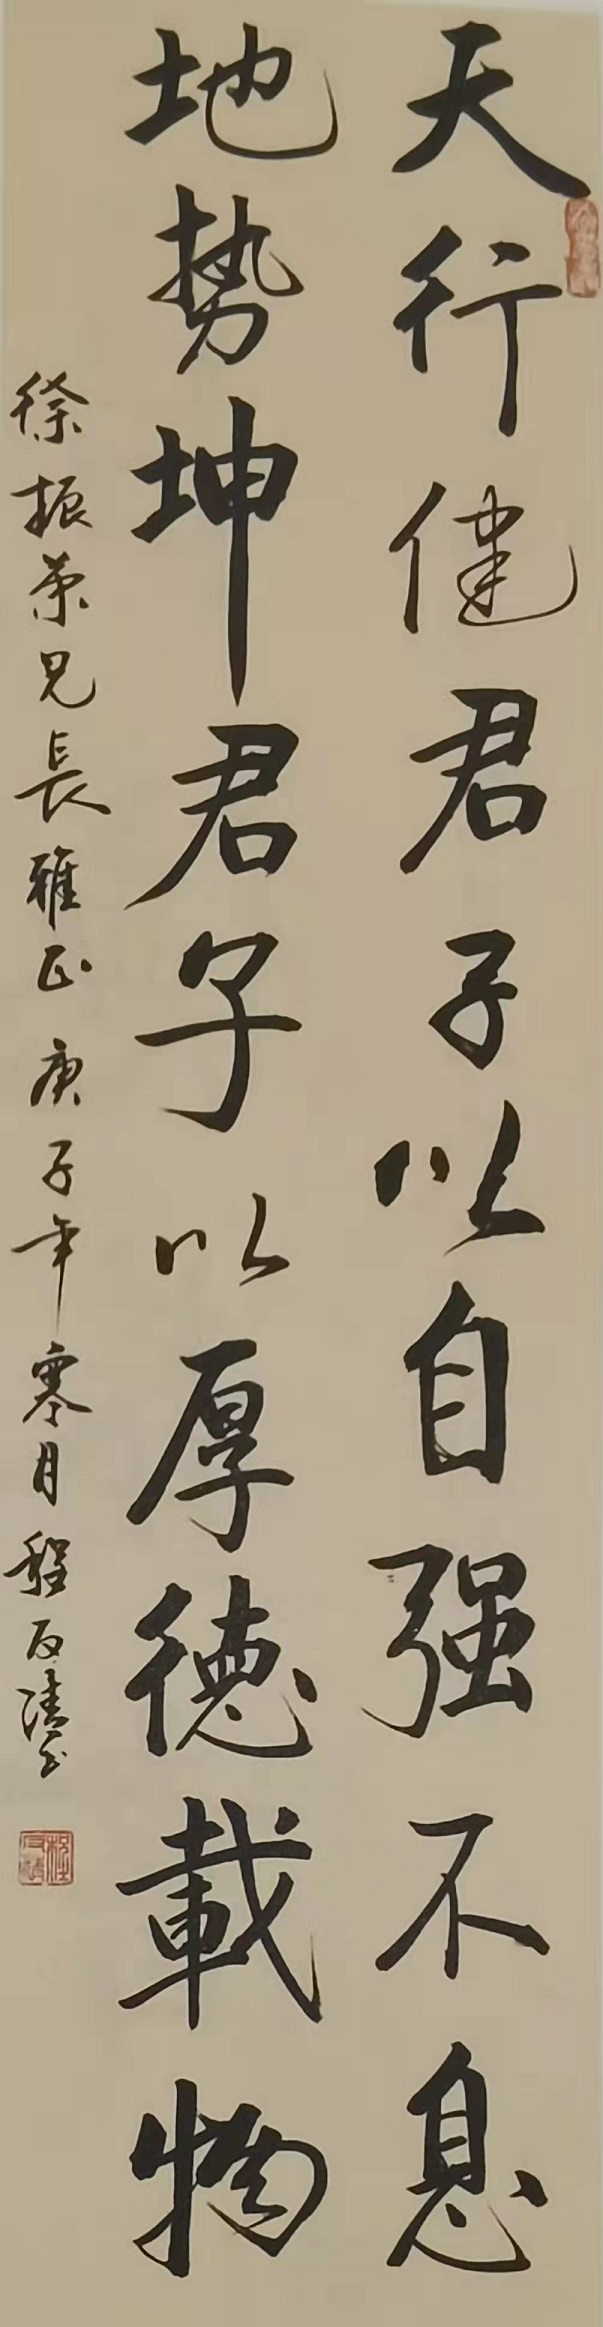 天行健君子以自强不息
地势坤君子以厚德載物
徐振荣兄長雅正 庚子年寒月 程友清书